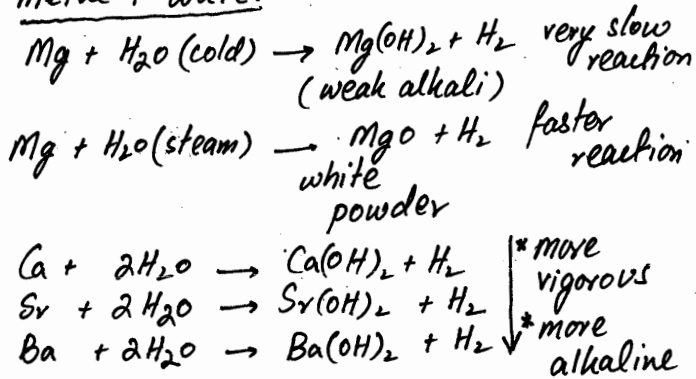 Mg + H₂O (cold) → Mg(OH)₂ + H₂ very slow reaction
(weak alkali)
Mg + H₂O (steam) → MgO + H₂ faster reaction
white powder
Ca + 2H₂O → Ca(OH)₂ + H₂
Sr + 2H₂O → Sr(OH)₂ + H₂
Ba + 2H₂O → Ba(OH)₂ + H₂
* more vigorous
* more alkaline